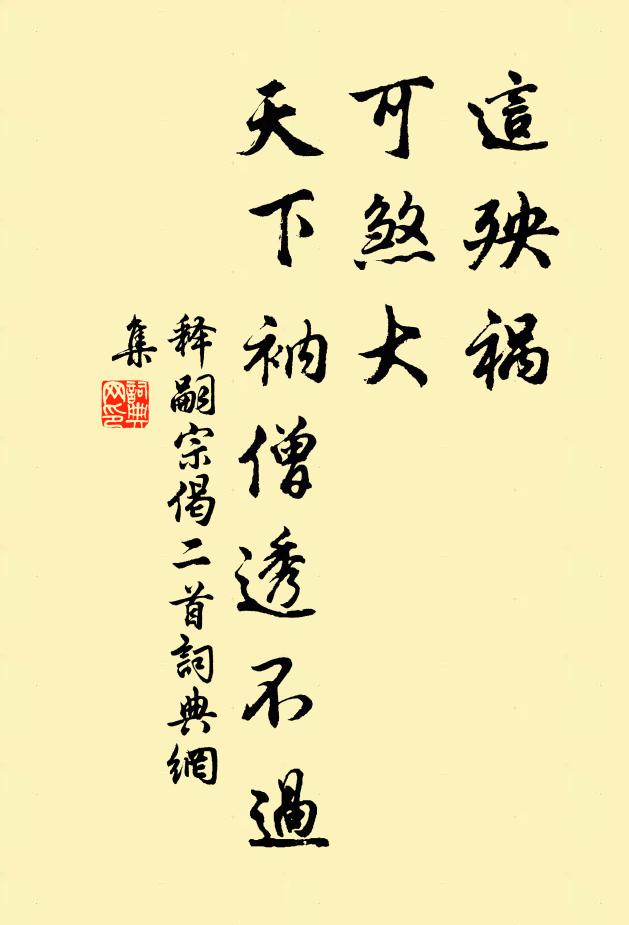 這殃禍
可煞大
天下衲僧透不過
释嗣宗偈二首詞典網
集
詞典網印